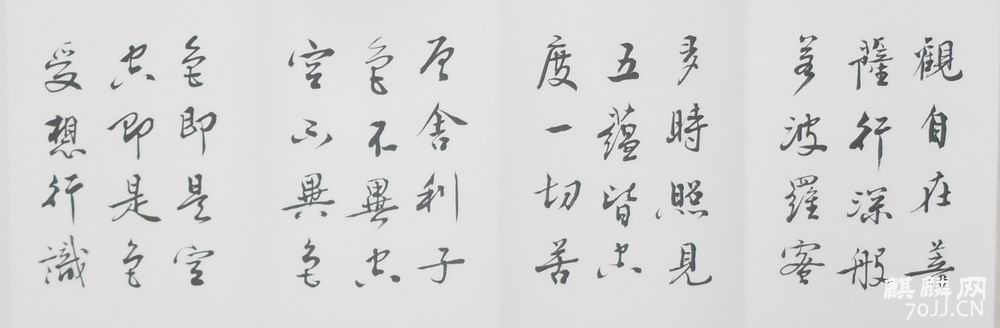 觀自在菩
薩行深般
若波羅蜜
多時照見
五蘊皆空
度一切苦
厄舍利子
色不異空
空不異色
色即是空
空即是色
受想行識
麒麟网
70JJ.CN